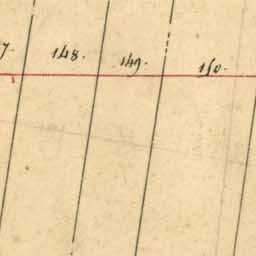 7. 148. 149. 150.